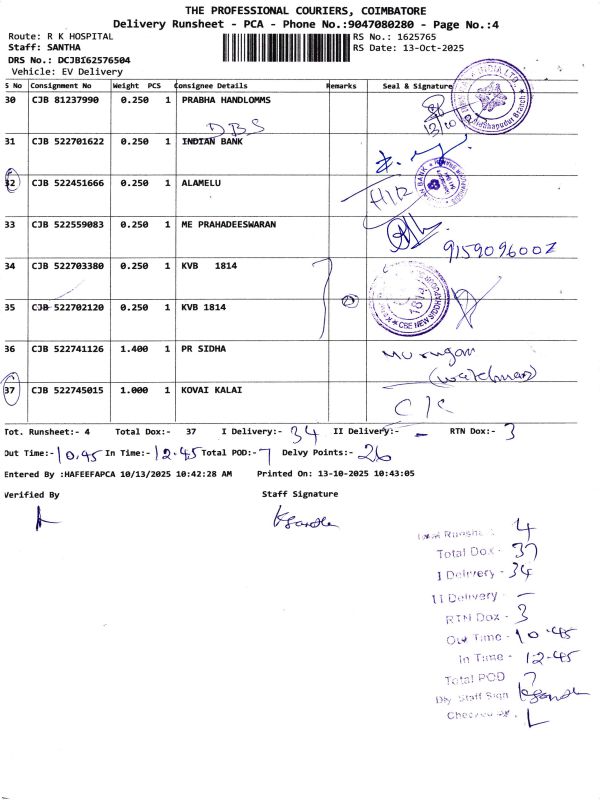 THE PROFESSIONAL COURIERS, COIMBATORE
Delivery Runsheet - PCA - Phone No.:9047080280 - Page No.:4
Route: R K HOSPITAL
RS No.: 1625765
Staff: SANTHA
RS Date: 13-Oct-2025
DRS No.: DCJB162576504
Vehicle: EV Delivery
S No Consignment No Weight PCS Consignee Details Remarks Seal & Signature
30 CJB 81237990 0.250 1 PRABHA HANDLOMMS
DBS
31 CJB 522701622 0.250 1 INDIAN BANK
32 CJB 522451666 0.250 1 ALAMELU
33 CJB 522559083 0.250 1 ME PRAHADEESWARAN
9159096002
34 CJB 522703380 0.250 1 KVB 1814
35 CJB 522702120 0.250 1 KVB 1814
1814
CBE NEW SIDDHAPUDUR
36 CJB 522741126 1.400 1 PR SIDHA
Murugan
(watchman)
37 CJB 522745015 1.000 1 KOVAI KALAI
C/C
Tot. Runsheet:- 4 Total Dox:- 37 I Delivery:- 34 II Delivery:- - RTN Dox:- 3
Out Time:- 10.45 In Time:- 12.45 Total POD:- 7 Delvy Points:- 26
Entered By :HAFEEFAPCA 10/13/2025 10:42:28 AM Printed On: 13-10-2025 10:43:05
Verified By Staff Signature
Total Runsheet: 4
Total Dox - 37
I Delivery - 34
II Delivery - -
RTN Dox - 3
Out Time - 10.45
In Time - 12.45
Total POD 7
Dly. Staff Sign